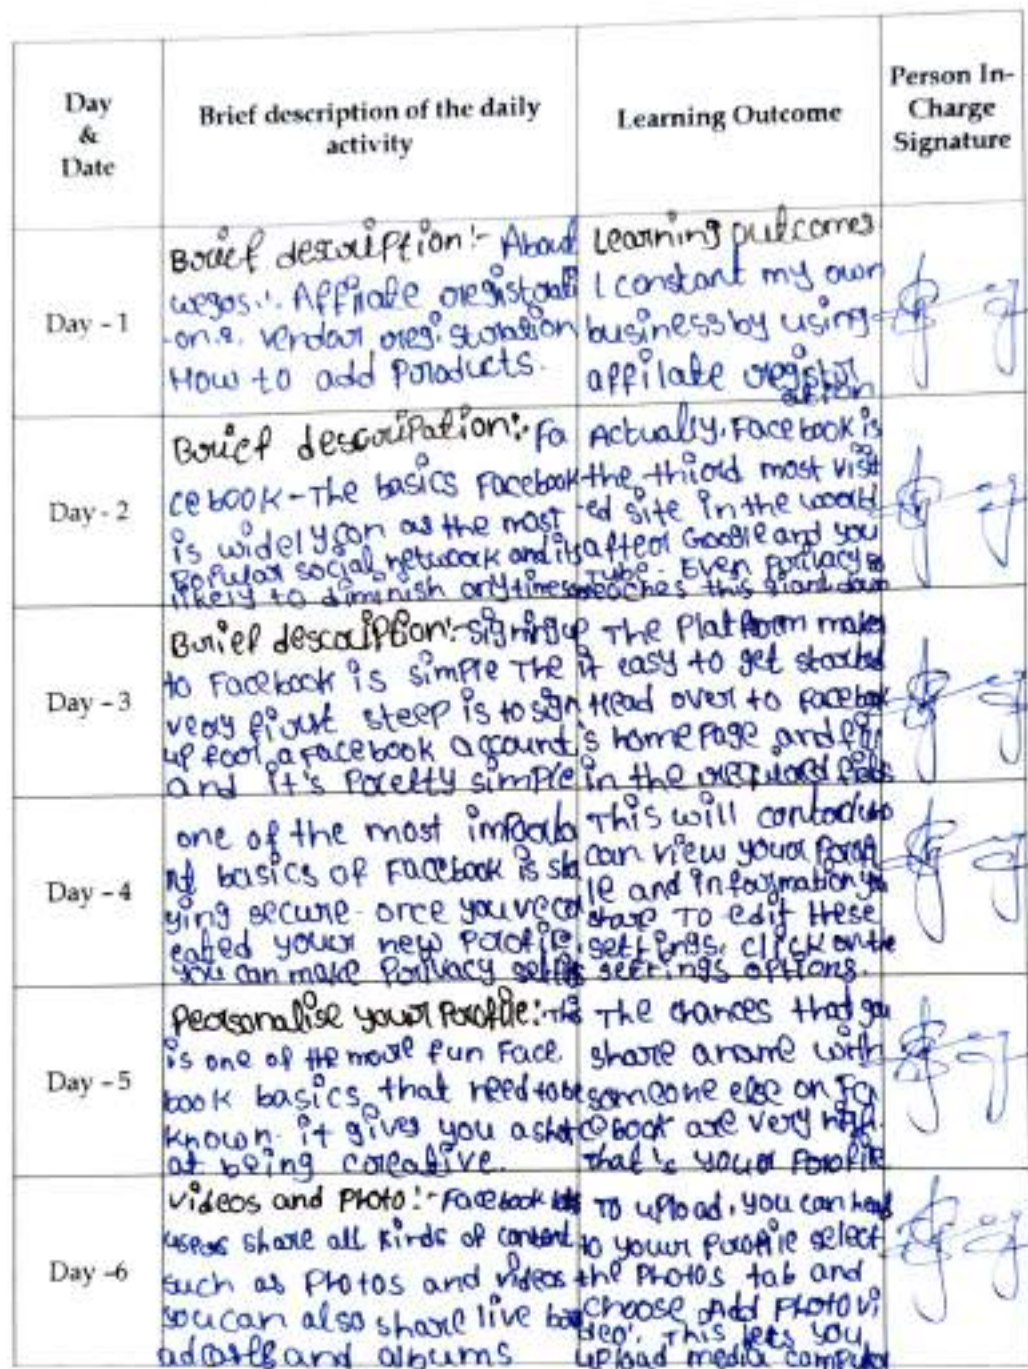 Day
&
Date
Brief description of the daily
activity
Learning Outcome
Person In-
Charge
Signature
Day - 1
Brief description:- About
wegos.:. Affilate registrati
-on.&. Vendor registration
How to add Products.
Learning outcomes
I constant my own
business by using
affilate registor
ation
Day - 2
Brief descripation:- Fa
cebook - The basics Facebook
is widely as the most
Popular social network and its
likely to diminish anytime
Actually, Facebook is
the third most visit
-ed site in the world
after Google and you
Tube. Even privacy
this giant down
Day - 3
Brief description:- signing up
to Facebook is simple The
very first steep is to sign
up foor a Facebook account
and it's Pretty simple
The Platform makes
it easy to get started
Head over to Facebook
's home page and fill
in the required fields
Day - 4
one of the most importa
nt basics of Facebook is sta
ying secure. once you've cr
eated your new Profile,
you can make Privacy
This will who
can view your Profi
le and information you
share To edit these
settings, click on the
settings options.
Day - 5
Personalise your Profile:- This
is one of the more fun Face
book basics that need to be
known. it gives you a shot
at being creative.
The chances that you
share a name with
someone else on Fa
cebook are very high.
that's your Profile
Day -6
videos and Photo:- Facebook lets
users share all kinds of content
such as Photos and videos
you can also share live bro
adcasts and albums
To upload, you can head
to your profile select
the Photos tab and
choose Add Photo vi
deo. This lets you
upload media computer